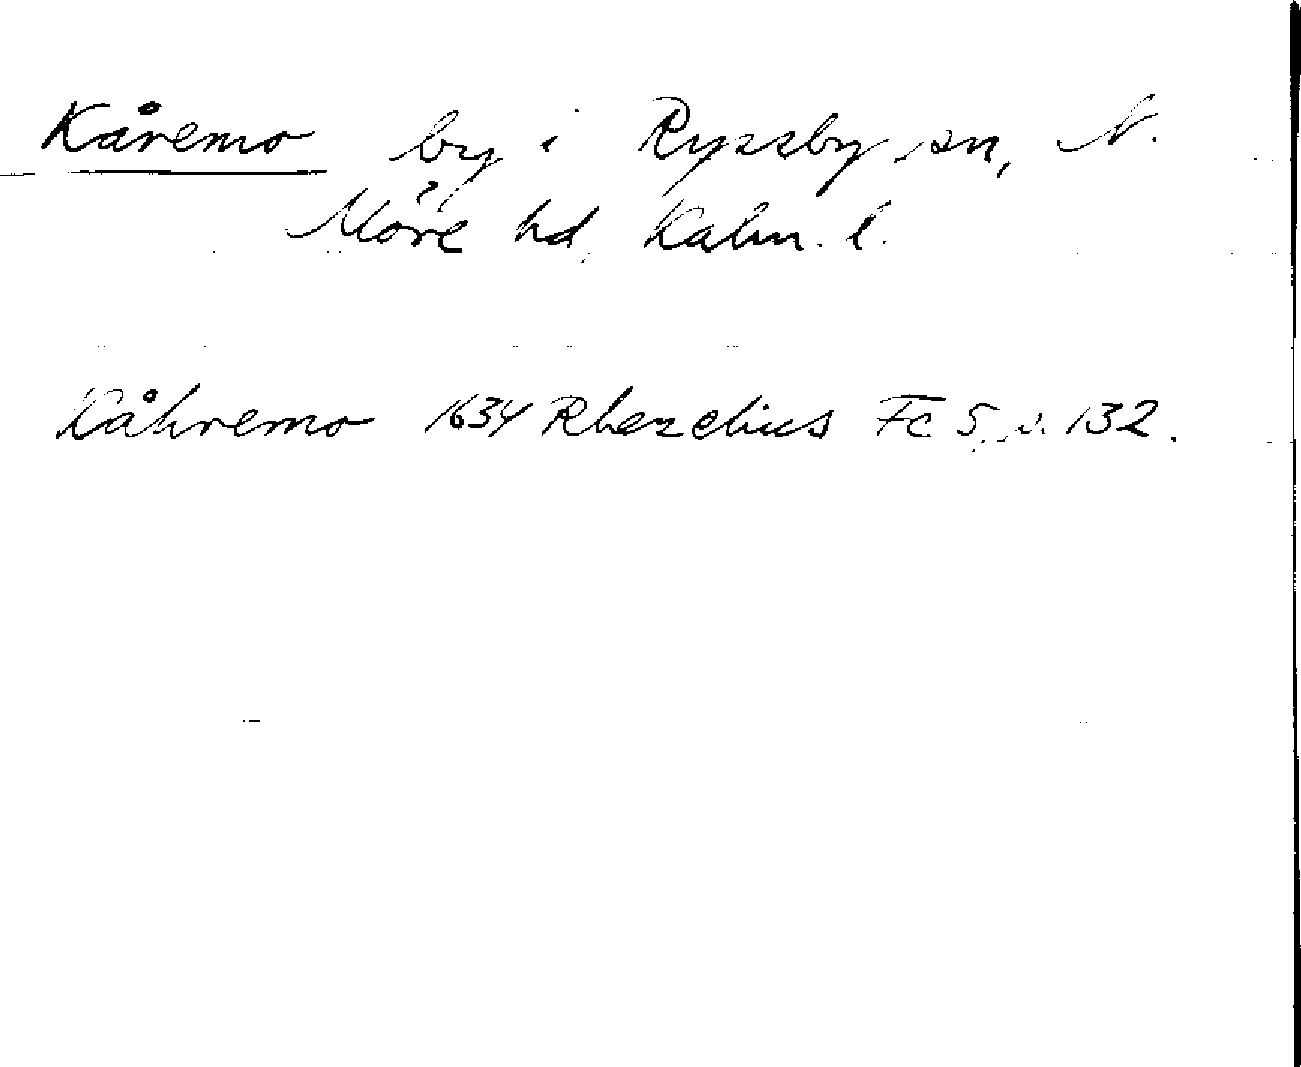 Kåremo by i Ryssby sn, N.
Möre hd, Kalm. l.
Kåhremo 1634 Rhezelius Fc 5, s. 132.